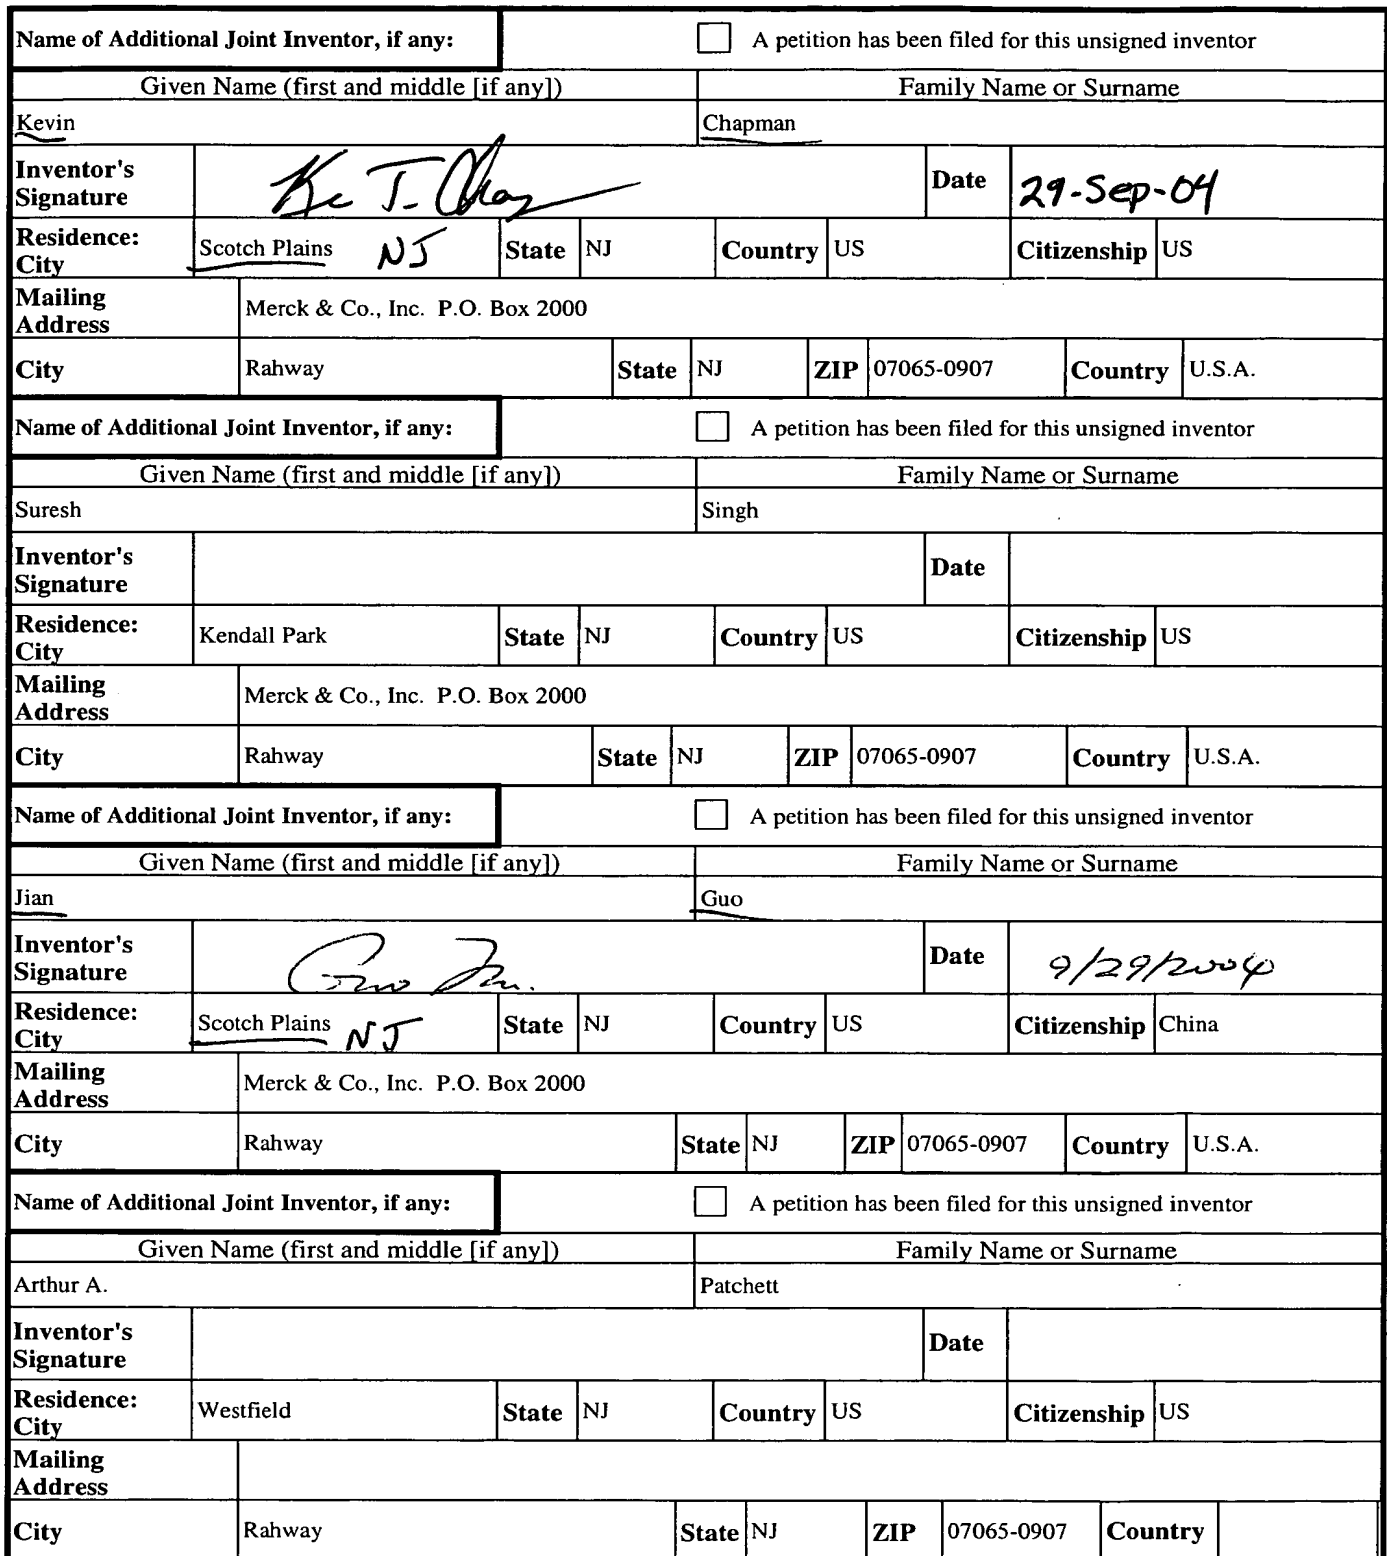 Name of Additional Joint Inventor, if any: A petition has been filed for this unsigned inventor
Given Name (first and middle [if any]) Family Name or Surname
Kevin Chapman
Inventor's Signature Date 29-Sep-04
Residence: City Scotch Plains NJ State NJ Country US Citizenship US
Mailing Address Merck & Co., Inc. P.O. Box 2000
City Rahway State NJ ZIP 07065-0907 Country U.S.A.
Name of Additional Joint Inventor, if any: A petition has been filed for this unsigned inventor
Given Name (first and middle [if any]) Family Name or Surname
Suresh Singh
Inventor's Signature Date
Residence: City Kendall Park State NJ Country US Citizenship US
Mailing Address Merck & Co., Inc. P.O. Box 2000
City Rahway State NJ ZIP 07065-0907 Country U.S.A.
Name of Additional Joint Inventor, if any: A petition has been filed for this unsigned inventor
Given Name (first and middle [if any]) Family Name or Surname
Jian Guo
Inventor's Signature Date 9/29/2004
Residence: City Scotch Plains NJ State NJ Country US Citizenship China
Mailing Address Merck & Co., Inc. P.O. Box 2000
City Rahway State NJ ZIP 07065-0907 Country U.S.A.
Name of Additional Joint Inventor, if any: A petition has been filed for this unsigned inventor
Given Name (first and middle [if any]) Family Name or Surname
Arthur A. Patchett
Inventor's Signature Date
Residence: City Westfield State NJ Country US Citizenship US
Mailing Address
City Rahway State NJ ZIP 07065-0907 Country